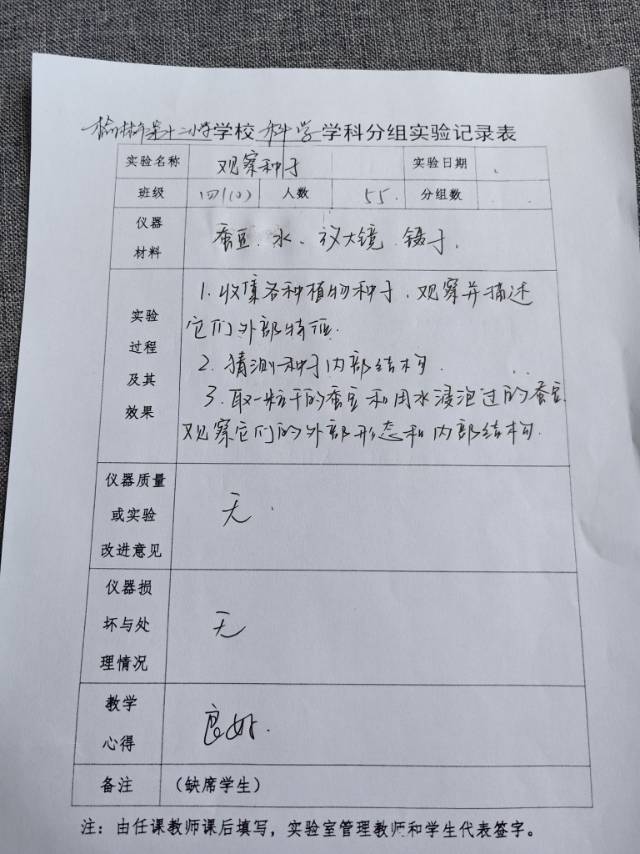 榆林市第十二小学学校 科学 学科分组实验记录表
实验名称 观察种子 实验日期
班级 四(0) 人数 55. 分组数
仪器材料 蚕豆、水、放大镜、镊子.
实验过程及其效果
1. 收集各种植物种子, 观察并描述
它们外部特征.
2. 猜测种子内部结构.
3. 取一粒干的蚕豆和用水浸泡过的蚕豆
观察它们的外部形态和内部结构.
仪器质量
或实验
改进意见
无.
仪器损
坏与处
理情况
无
教学
心得
良好.
备注 (缺席学生)
注: 由任课教师课后填写, 实验室管理教师和学生代表签字。